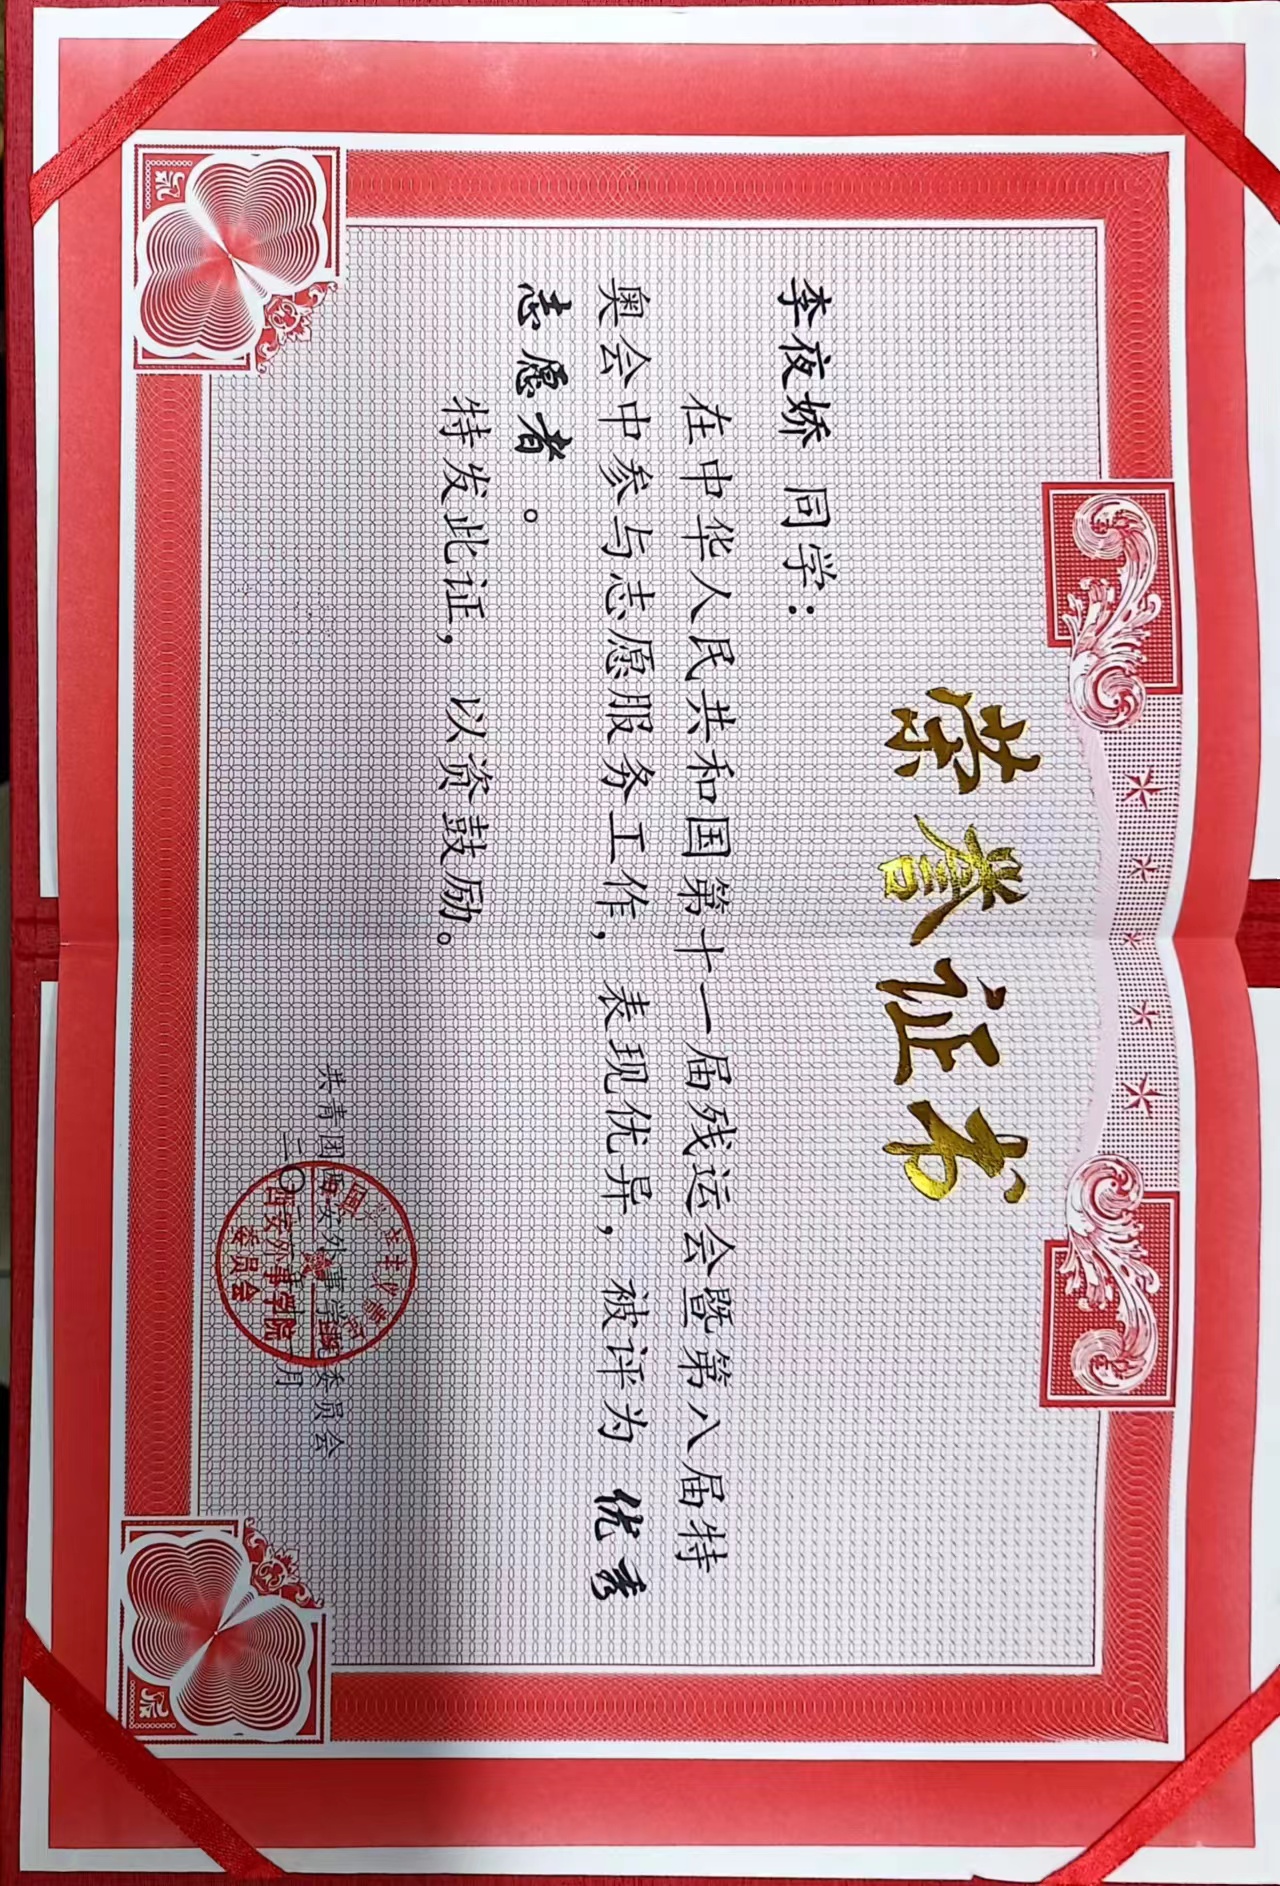 荣誉证书
李夜娇 同学：
在中华人民共和国第十一届残运会暨第八届特
奥会中参与志愿服务工作，表现优异，被评为 优秀
志愿者 。
特发此证，以资鼓励。
共青团西安外事学院委员会
二〇 月
西安外事学院
委员会